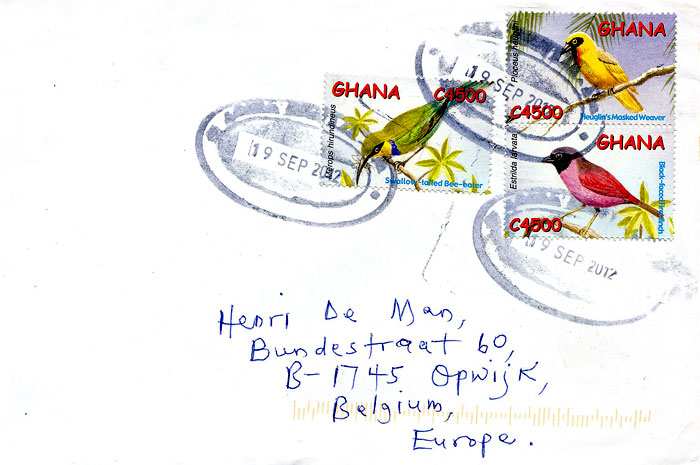 GHANA
C4500
Ploceus heuglini
Heuglin's Masked Weaver
GHANA
C4500
Merops hirundineus
Swallow-tailed Bee-eater
GHANA
C4500
Estrilda larvata
Black-faced Firefinch
19 SEP 2012
19 SEP 2012
19 SEP 2012
Henri De Man,
Bundestraat 60,
B-1745 Opwijk,
Belgium,
Europe.